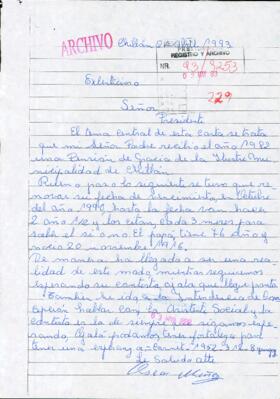 ARCHIVO
Chillán Abril 1993
REGISTRO Y ARCHIVO
NR. 93/9253
229
Exlentisimo
Señor
Presidente
El tema central de esta carta se trata
que mi Señor Padre recibio el año 1982
una Pensión de Gracia de la Ilustre Mu
nicipalidad de Chillán
Pidieron paso lo siguiente se tuvo que re
novar su fecha de vencimiento en Octubre
del año 1990, hasta la fecha van haver
2 año 1/2 y los están 3 meses para
saber el si o no. El papá tiene 76 años y
nacio 20 noviembre 1916.
De manera ha llegado a ser una rea
lidad de este modo mientras seguiremos
esperando su contesta ojala que llegue pronto
Tambien he ido a la Intendencia de Con
cepción hablar con la Asistente Social y la
contesta es la de siempre que sigamos espe
rando Ojalá podamos tener fortaleza para
tener una esperanza - Carnet. 1952.
Le Saluda Atte
Oscar Muñoz